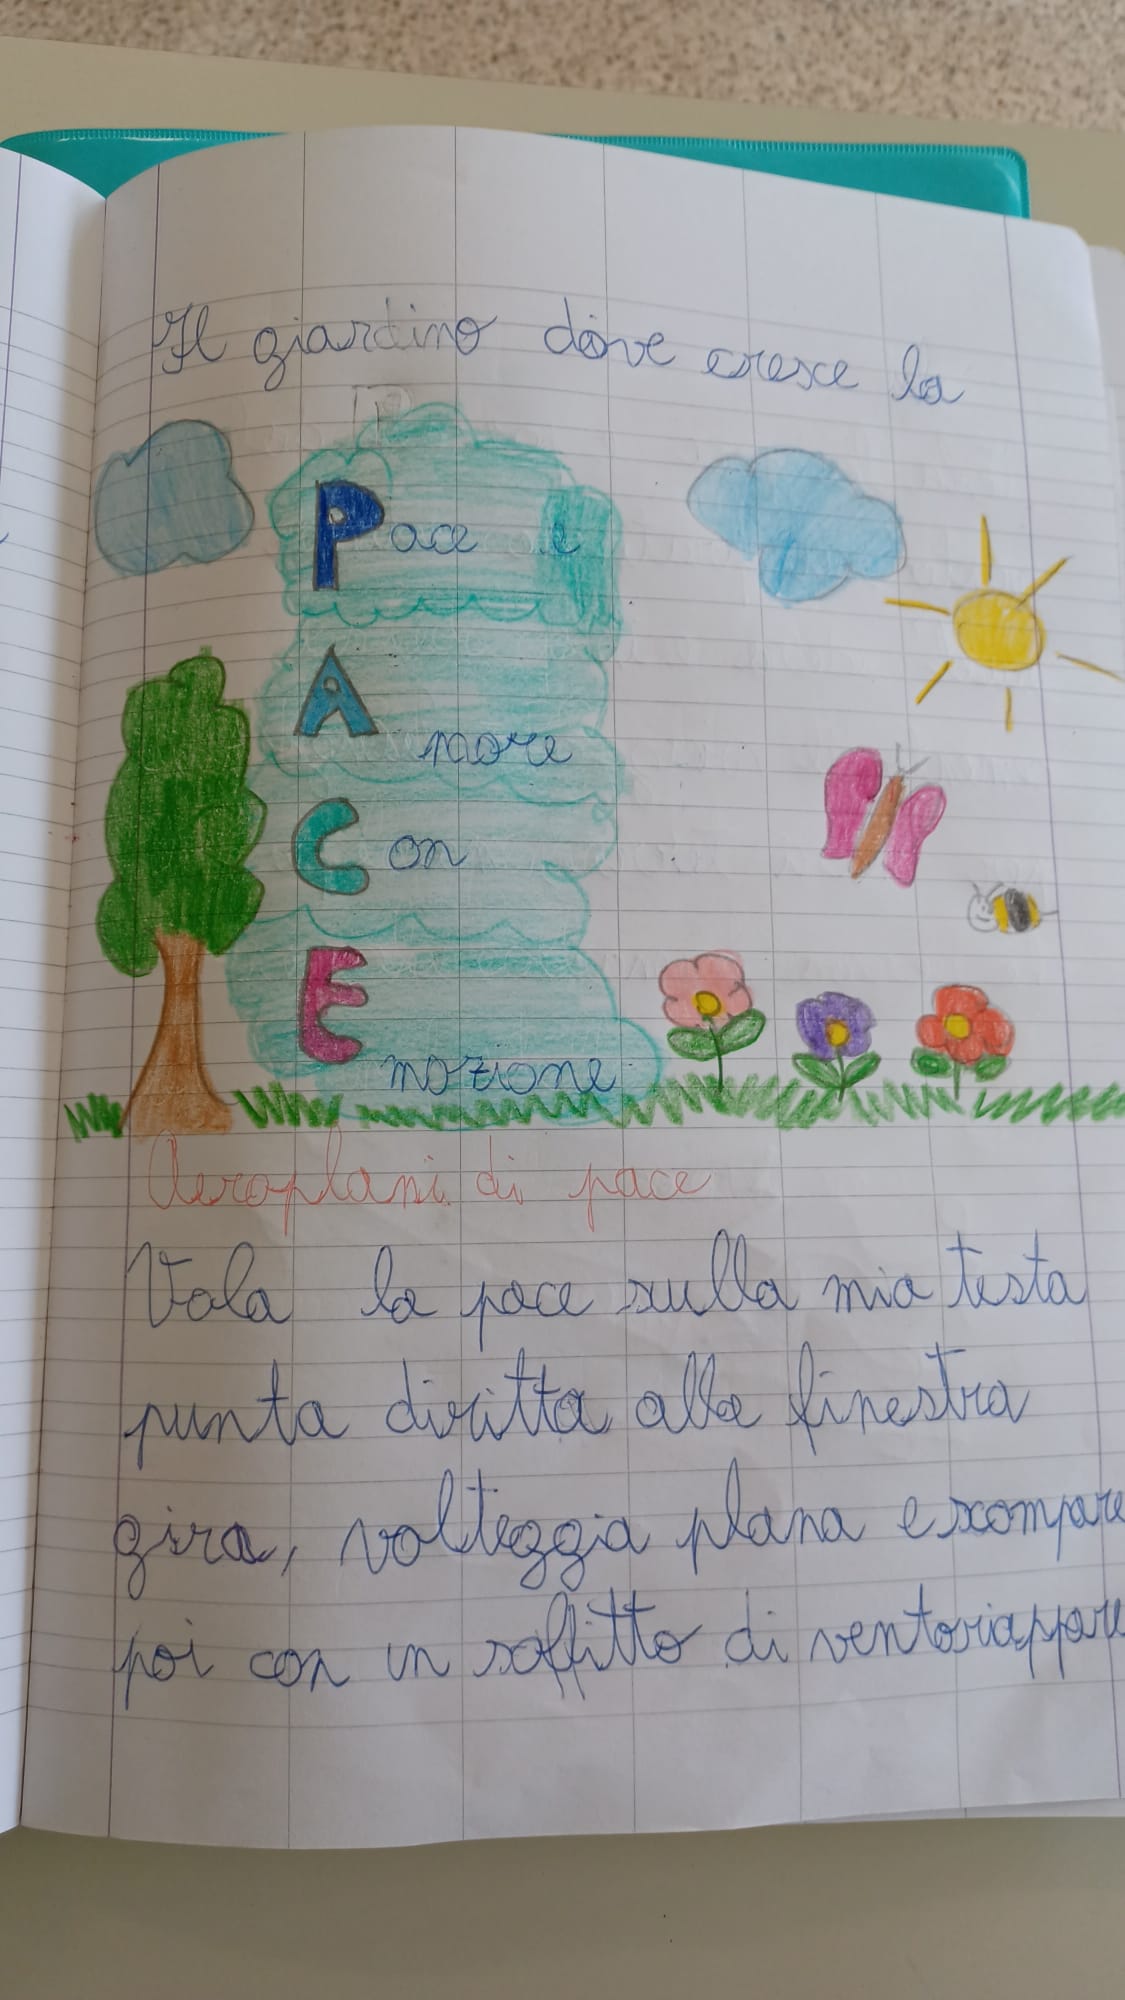 Il giardino dove cresce la
Pace e
Amore
Con
Emozione
Aeroplani di pace
Vola la pace sulla mia testa
punta diritta alla finestra
gira, volteggia plana e scompare
poi con un soffitto di vento riappare